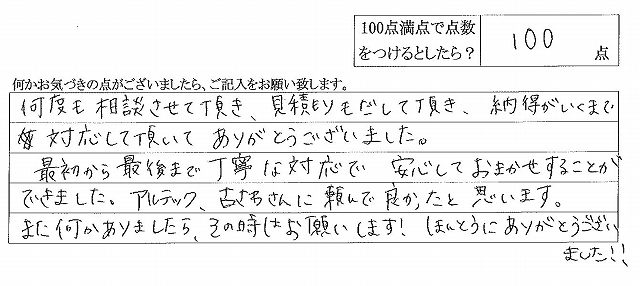 100点満点で点数
をつけるとしたら？
100 点
何かお気づきの点がございましたら、ご記入をお願い致します。
何度も相談させて頂き、見積りもだして頂き、納得がいくまで
対応して頂いて ありがとうございました。
最初から最後まで丁寧な対応で 安心しておまかせすることが
できました。アルテック、さんに頼んで良かったと思います。
また何かありましたら、その時はお願いします! ほんとうにありがとうござい
ました!!